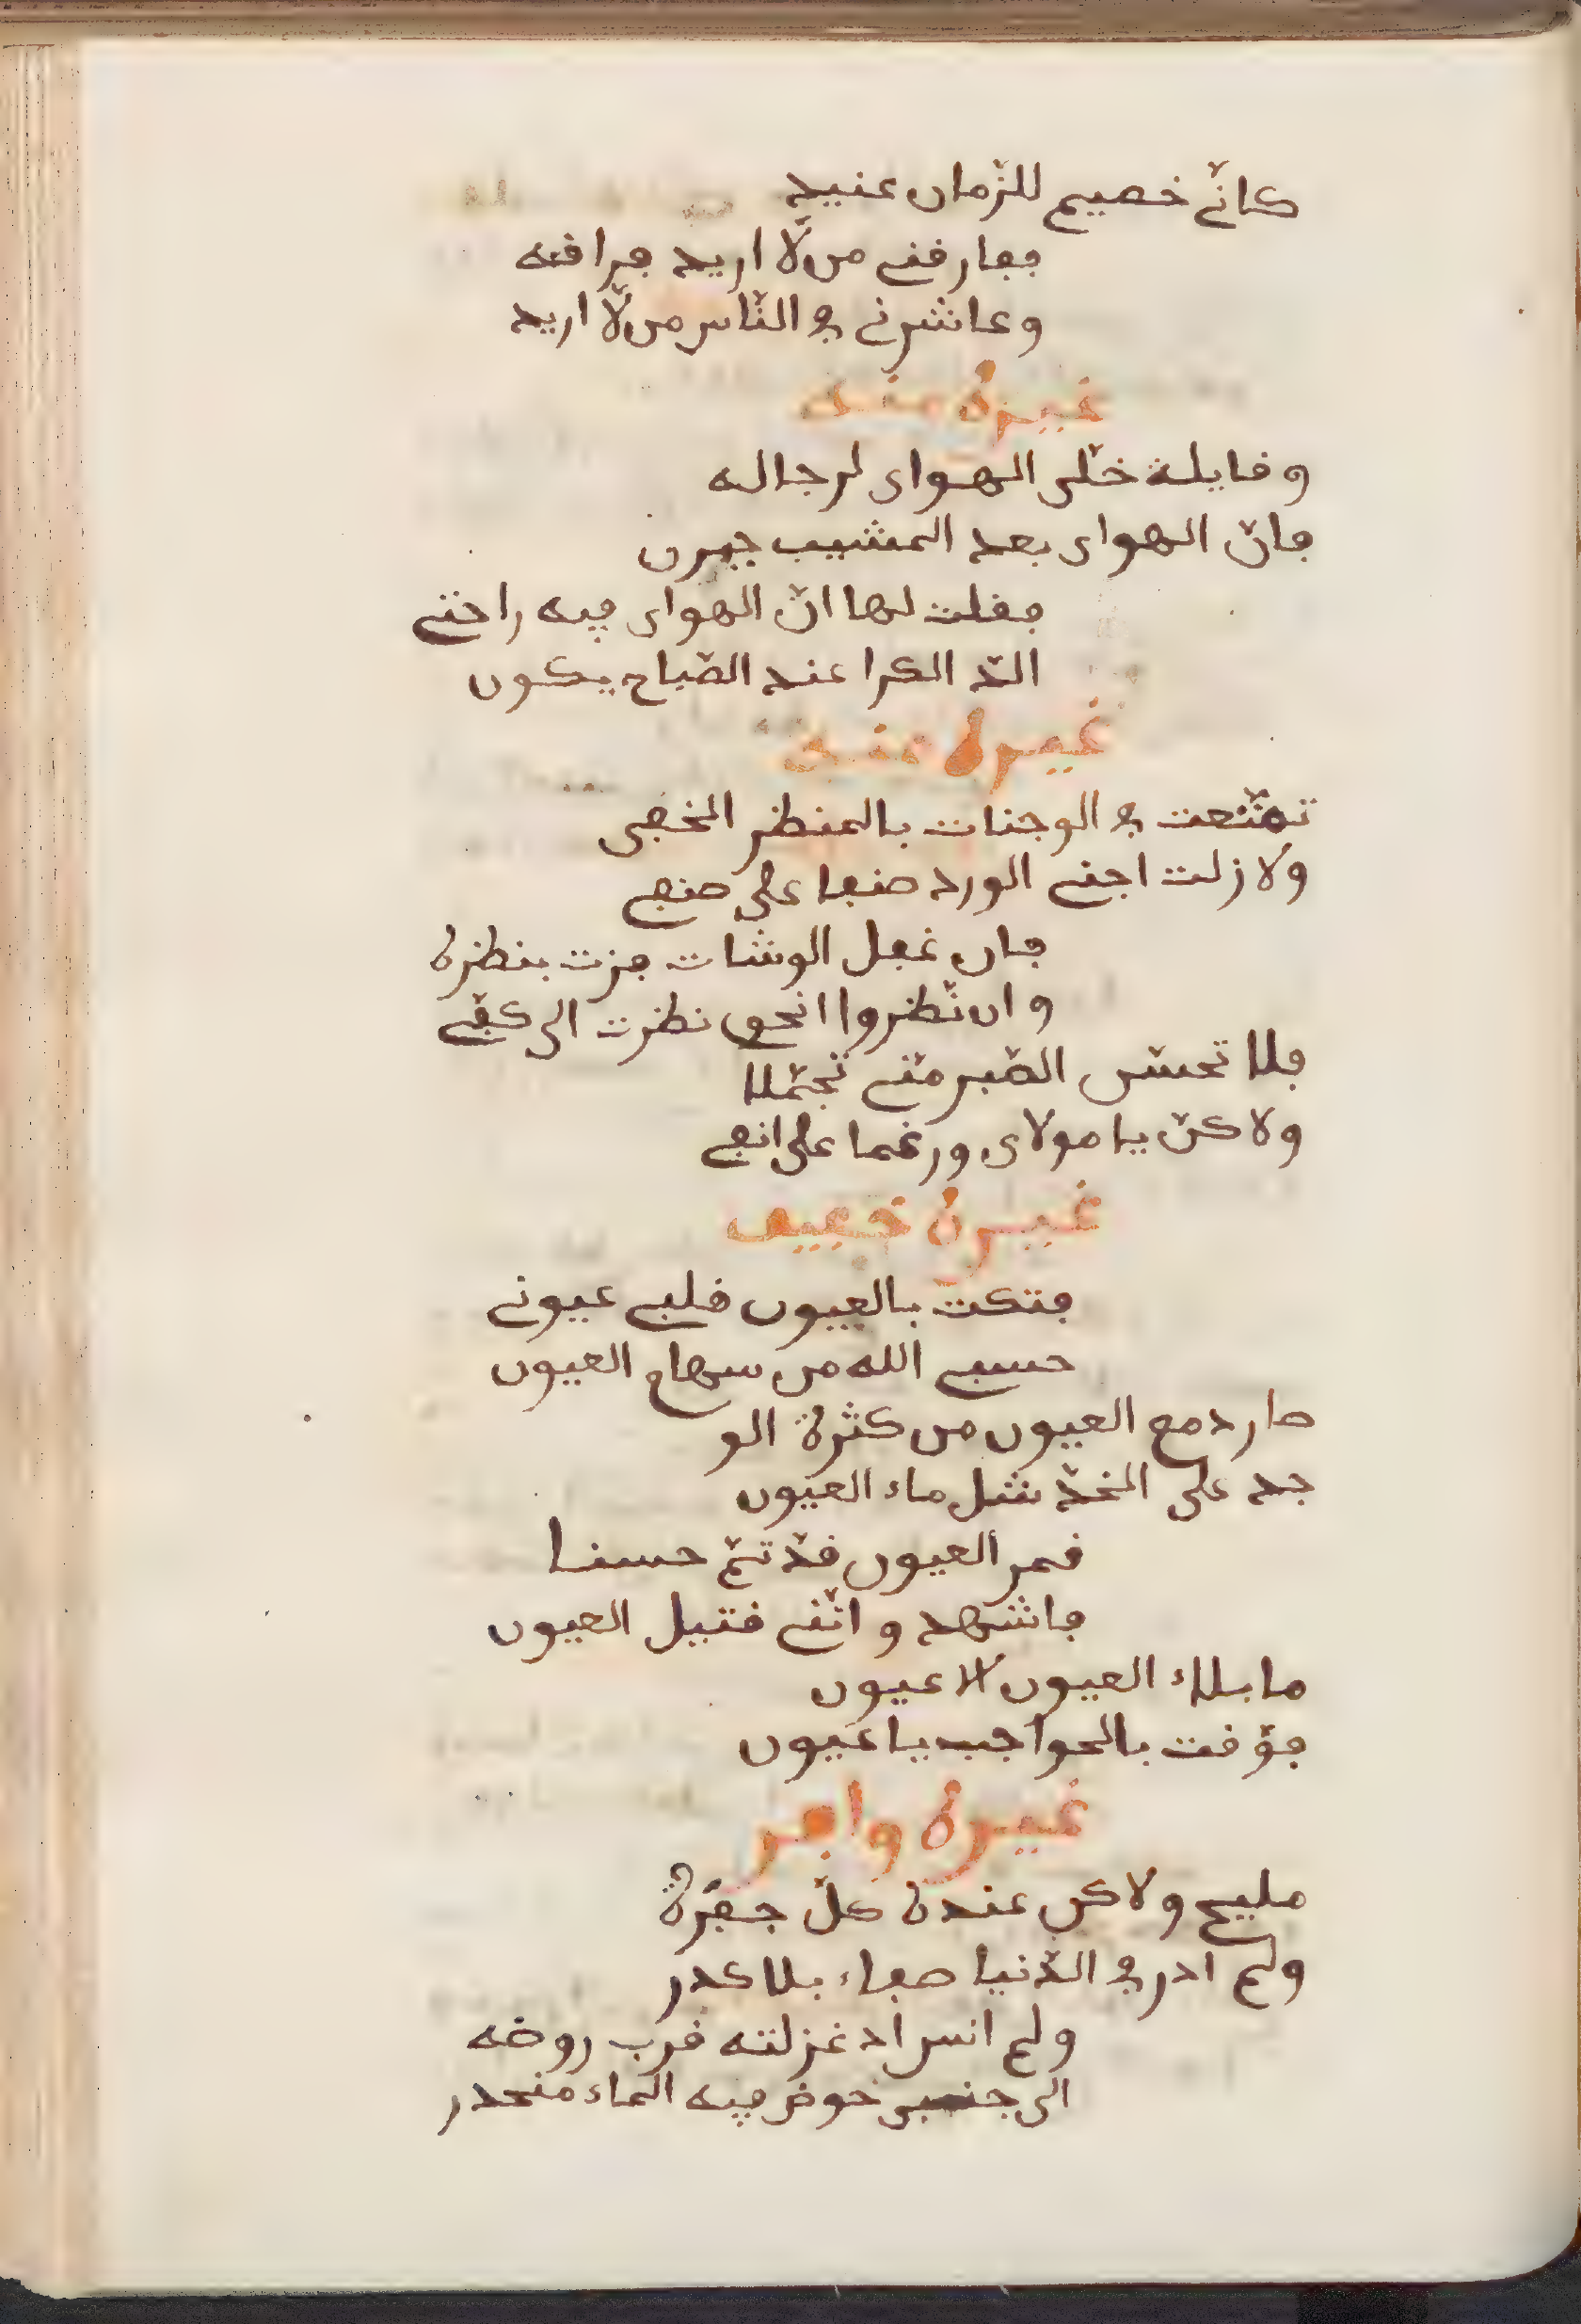 كانّے خصيم للزّمان عنيد
ففارقنے من لّا اريد فراقه
وعاشرنے في النّاس من لّا اريد
غيره منه
وقايلة خلّى الهواى لرجاله
فانّ الهواى بعد المشيب جنون
فقلت لها انّ الهواى فيه راحتے
الذّ الكرا عند الصّباح يكون
غيره منه
تمتّعت في الوجنات بالمنظر المخفى
ولا زلت اجنے الورد صنفا على صنفے
فان غفل الوشات فزت بنظره
وان نّظروا انحوى نظرت الى كفّے
فلا تحسّس الصّبر منّے تجمّلا
ولاكنّ يا مولاى ورغما على انفے
غيره خفيف
فتكت بالعيون قلبے عيونے
حسبے الله من سهام العيون
صار دمع العيون من كثرة الو
جد على الخدّ شل ماء العيون
قمر العيون قدّ تمّ حسنا
فاشهد وانّنے قتيل العيون
ما بلاء العيون الا عيون
فوّقت بالحواجب يا عيون
غيره وافر
مليح ولاكن عنده كلّ جفرّة
ولم ادر في الدّنيا صفاء بلا كدر
ولم انس اد غزلته قرب روضه
الى جنبى حوض فيه الماء منحدر